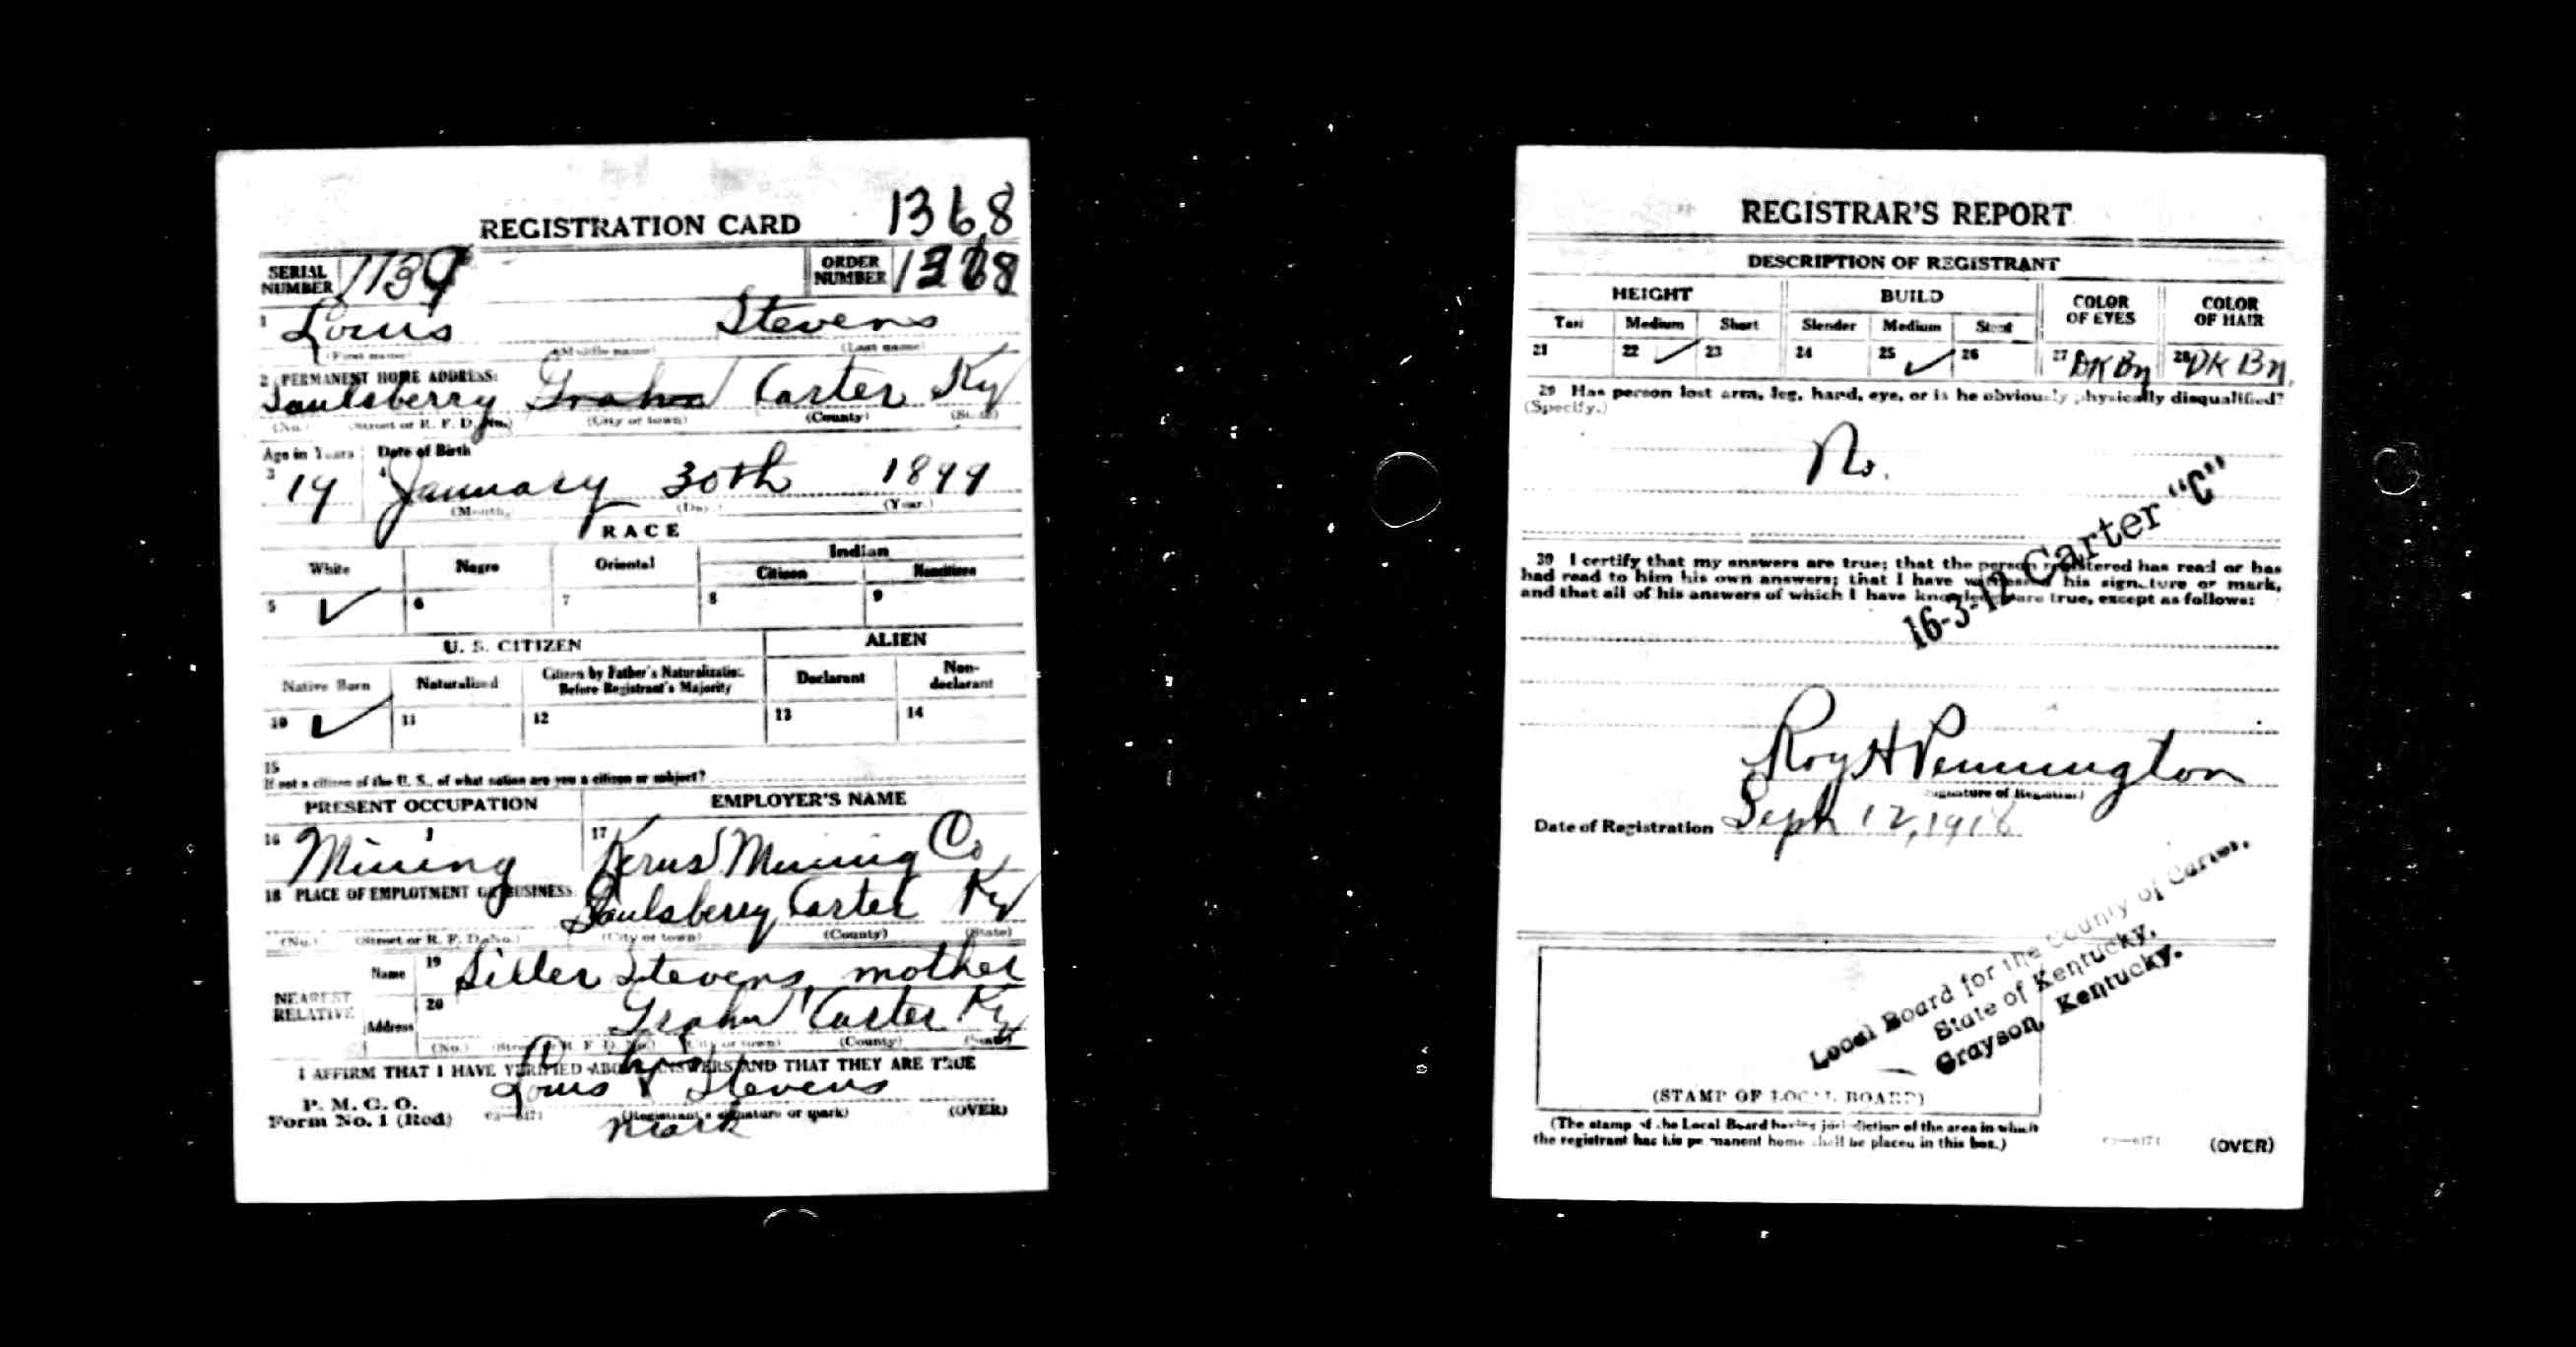 REGISTRATION CARD 1368
SERIAL NUMBER 1139 ORDER NUMBER 1368
1 Louis Stevens
(First name) (Middle name) (Last name)
2 PERMANENT HOME ADDRESS:
Saulsberry Grahn Carter Ky
(No.) (Street or R. F. D. No.) (City or town) (County) (State)
Age in Years Date of Birth
3 19 4 January 30th 1899
(Month.) (Day.) (Year.)
RACE
White Negro Oriental Indian
Citizen Noncitizen
5 ✓ 6 7 8 9
U. S. CITIZEN ALIEN
Native Born Naturalized Citizen by Father's Naturalization Before Registrant's Majority Declarant Non-declarant
10 ✓ 11 12 13 14
15
If not a citizen of the U. S., of what nation are you a citizen or subject?
PRESENT OCCUPATION EMPLOYER'S NAME
16 Mining 17 Mining Co
18 PLACE OF EMPLOYMENT OR BUSINESS:
Saulsberry Carter Ky
(No.) (Street or R. F. D. No.) (City or town) (County) (State)
NEAREST RELATIVE
Name 19 Stevens, mother
Address 20 Grahn Carter Ky
(No.) (Street or R. F. D. No.) (City or town) (County) (State)
I AFFIRM THAT I HAVE VERIFIED ABOVE ANSWERS AND THAT THEY ARE TRUE
P. M. G. O.
Form No. 1 (Red)
his
Louis X Stevens
(Registrant's signature or mark) (OVER)
mark
REGISTRAR'S REPORT
DESCRIPTION OF REGISTRANT
HEIGHT BUILD COLOR OF EYES COLOR OF HAIR
Tall Medium Short Slender Medium Stout
21 22 ✓ 23 24 25 ✓ 26 27 DK Bn 28 DK Bn.
29 Has person lost arm, leg, hand, eye, or is he obviously physically disqualified?
(Specify.)
No.
16-3-12 Carter "C"
30 I certify that my answers are true; that the person registered has read or has
had read to him his own answers; that I have witnessed his signature or mark,
and that all of his answers of which I have knowledge are true, except as follows:
Roy H Pennington
(Signature of Registrar)
Date of Registration Sept 12, 1918
Local Board for the County of Carter,
State of Kentucky,
Grayson, Kentucky.
(STAMP OF LOCAL BOARD)
(The stamp of the Local Board having jurisdiction of the area in which
the registrant has his permanent home shall be placed in this box.)
(OVER)